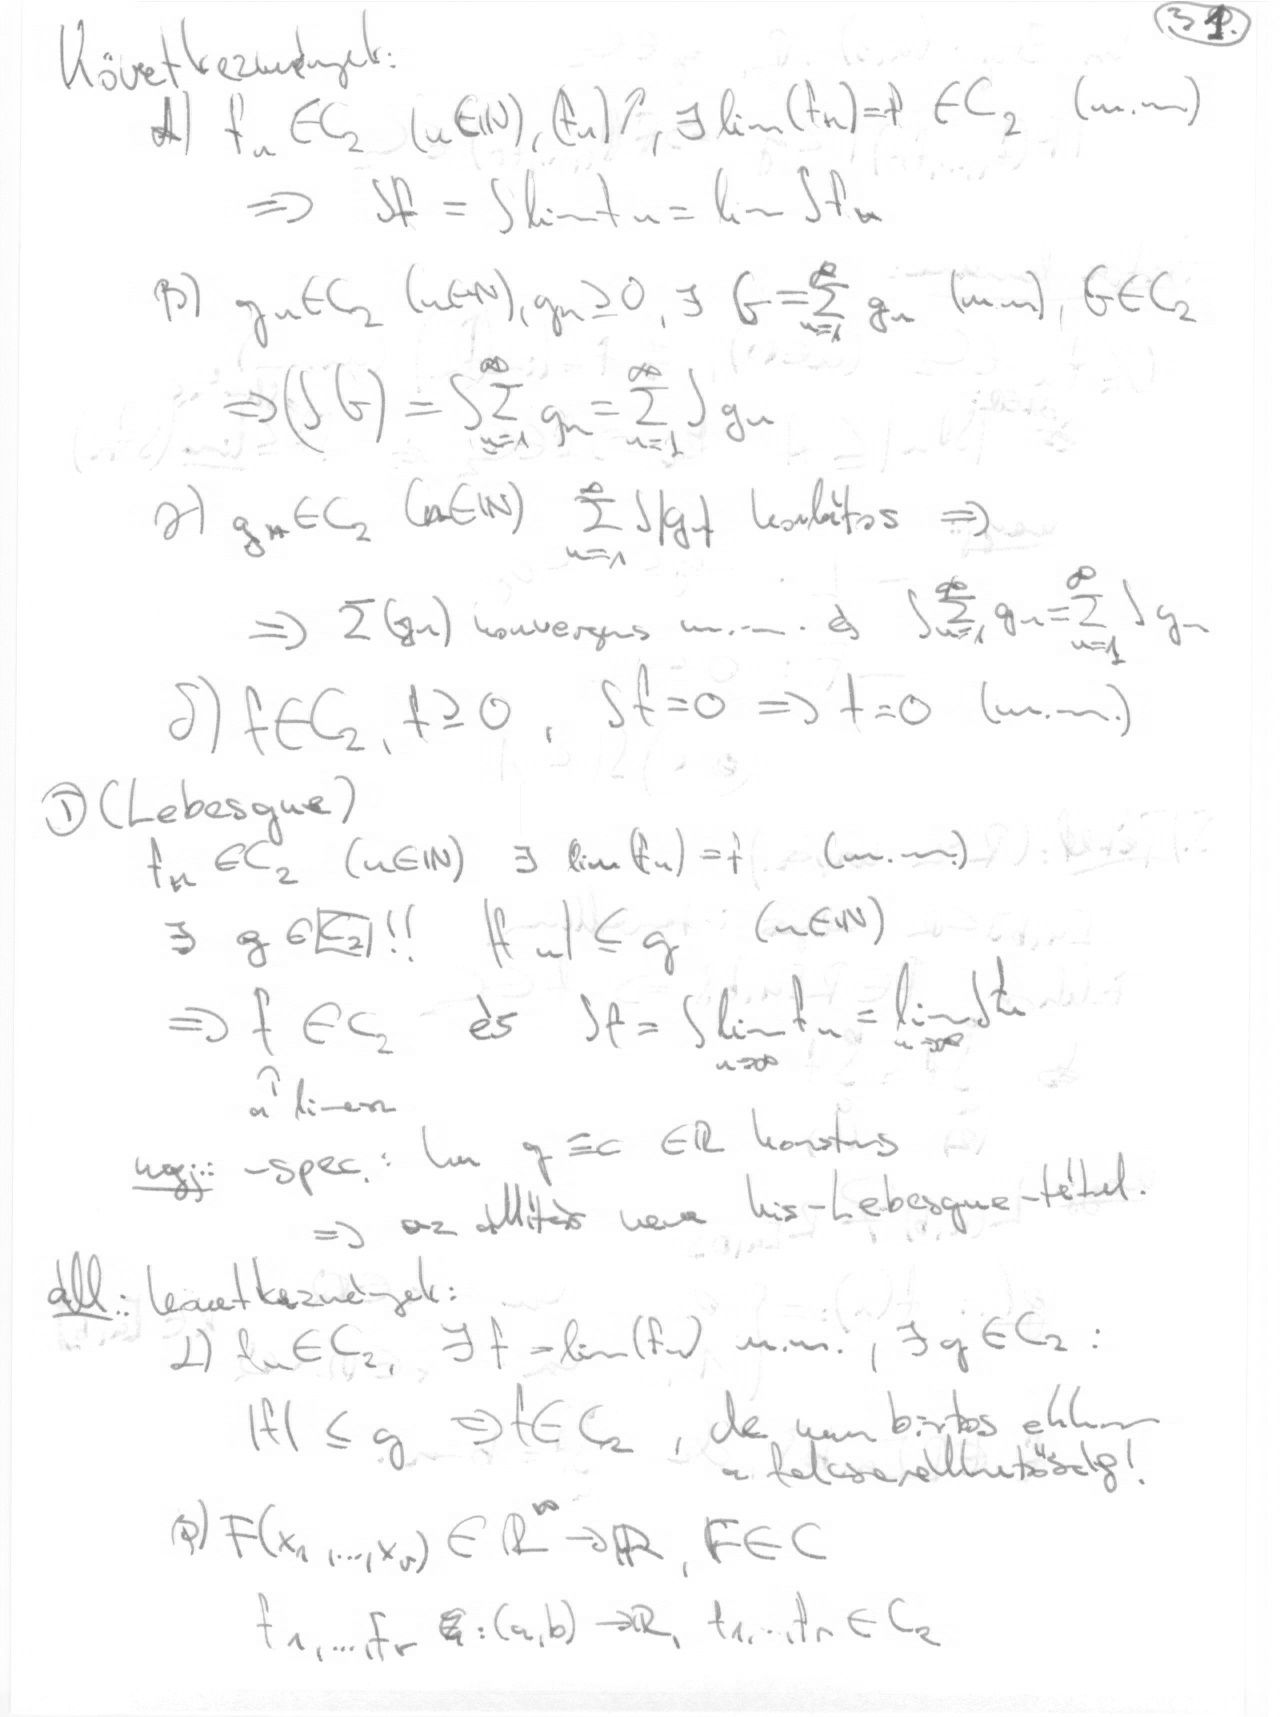 31.
Következmények:
α) f_n ∈ C_2 (n∈ℕ), (f_n)↑, ∃ lim(f_n) = f ∈ C_2 (m.m)
⇒ ∫f = ∫lim f_n = lim ∫f_n
β) g_n ∈ C_2 (n∈ℕ), g_n ≥ 0, ∃ G = ∑_{n=1}^∞ g_n (m.m), G ∈ C_2
⇒ (∫G) = ∫∑_{n=1}^∞ g_n = ∑_{n=1}^∞ ∫g_n
γ) g_n ∈ C_2 (n∈ℕ) ∑_{n=1}^∞ ∫|g_n| korlátos ⇒
⇒ ∑(g_n) konvergens m.m. és ∫∑_{n=1}^∞ g_n = ∑_{n=1}^∞ ∫g_n
δ) f ∈ C_2, f ≥ 0, ∫f = 0 ⇒ f = 0 (m.m.)
Ⓣ (Lebesgue)
f_n ∈ C_2 (n∈ℕ) ∃ lim(f_n) = f (m.m.)
∃ g ∈ C_2 !! |f_n| ≤ g (n∈ℕ)
⇒ f ∈ C_2 és ∫f = ∫lim_{n→∞} f_n = lim_{n→∞} ∫f_n
↑
a limesz
megj.: -spec.: ha g ≡ c ∈ ℝ konstans
⇒ az állítás neve kis-Lebesgue-tétel.
áll.: következmények:
α) f_n ∈ C_2, ∃ f = lim(f_n) m.m., ∃ g ∈ C_2 :
|f| ≤ g ⇒ f ∈ C_2, de nem biztos ekkor
a felcserélhetőség!
β) F(x_1,...,x_r) ∈ ℝ^∞ → ℝ, F ∈ C
f_1,...,f_r : (a,b) → ℝ, f_1,...,f_r ∈ C_2